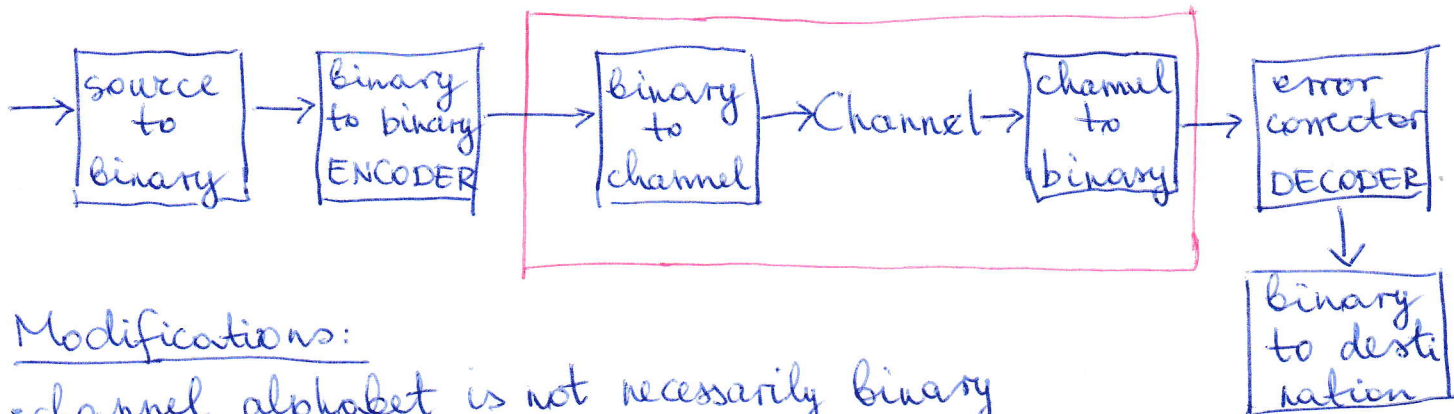 source
to
binary
binary
to binary
ENCODER
binary
to
channel
Channel
channel
to
binary
error
corrector
DECODER
binary
to desti
nation
Modifications:
channel alphabet is not necessarily binary